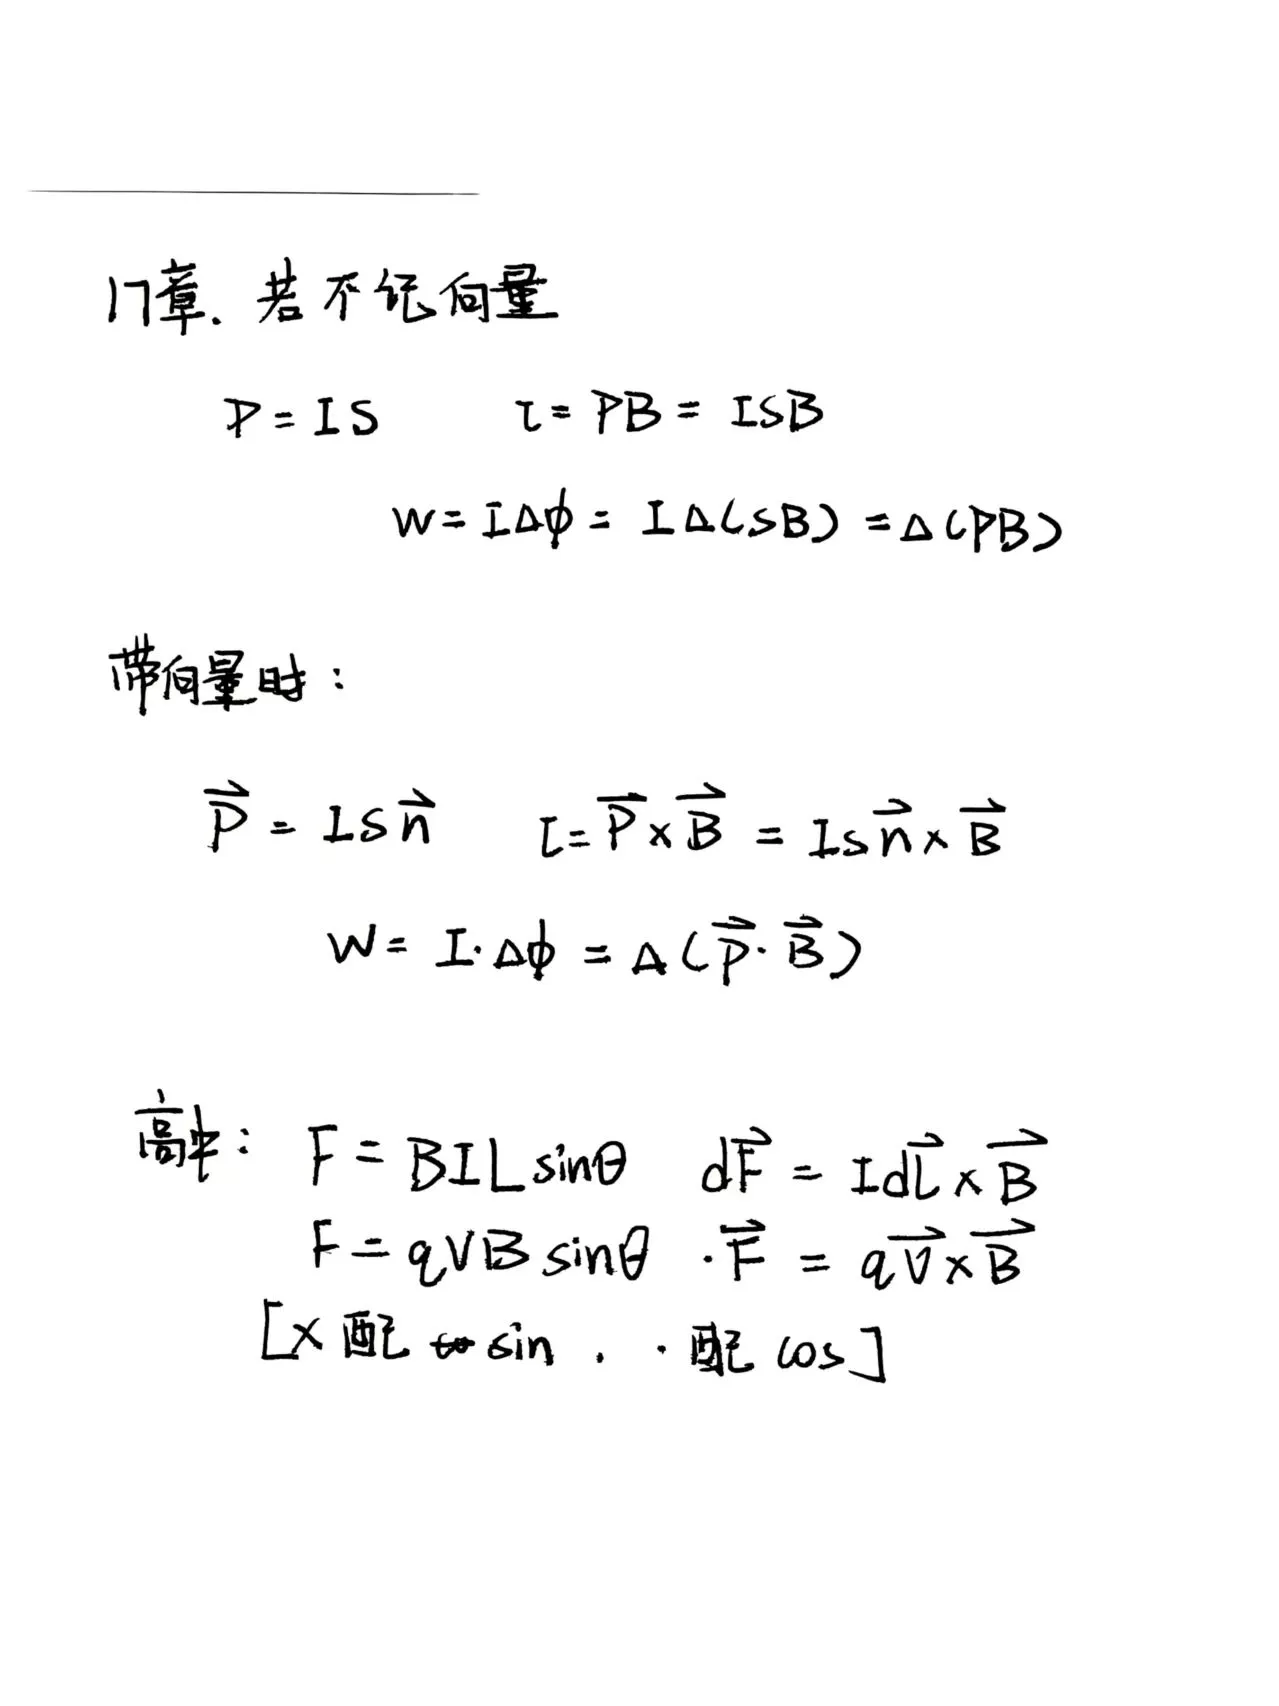 17章. 若不记向量
P = IS τ = PB = ISB
W = IΔϕ = IΔ(SB) = Δ(PB)
带向量时:
P⃗ = ISn⃗ τ = P⃗ × B⃗ = ISn⃗ × B⃗
W = I·Δϕ = Δ(P⃗·B⃗)
高中: F = BILsinθ dF⃗ = Idl⃗ × B⃗
F = qVBsinθ . F⃗ = qV⃗ × B⃗
[× 配 sin . · 配 cos]